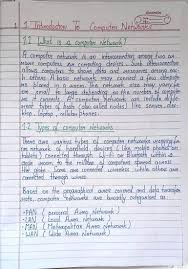 1. Introduction To Computer Networks
1.1 What is a computer Network?
A computer network is an interconnection among two or
more computers or computing devices. Such interconnection
allows computers to share data and resources among each
other. A basic network may connect a few computers
placed in a room.
The network size may vary from
small to large depending on the number of computers
it connects. A computer network can include different
types of hosts also called nodes like server, desktop,
laptop, cellular phones.
1.2 Types of computer networks
There are various types of computer networks
network of handheld devices (like mobile phones or
tablets) connected through Wi-Fi or Bluetooth within a
single room to the millions of computers spread across
the globe. Some are connected wireless while others
are connected through wires.
Based on the geographical area covered and data transfer
rate, computer networks are broadly categorised as:
• PAN (Personal Area Network)
• LAN (Local Area Network)
• MAN (Metropolitan Area Network)
• WAN (Wide Area Network)